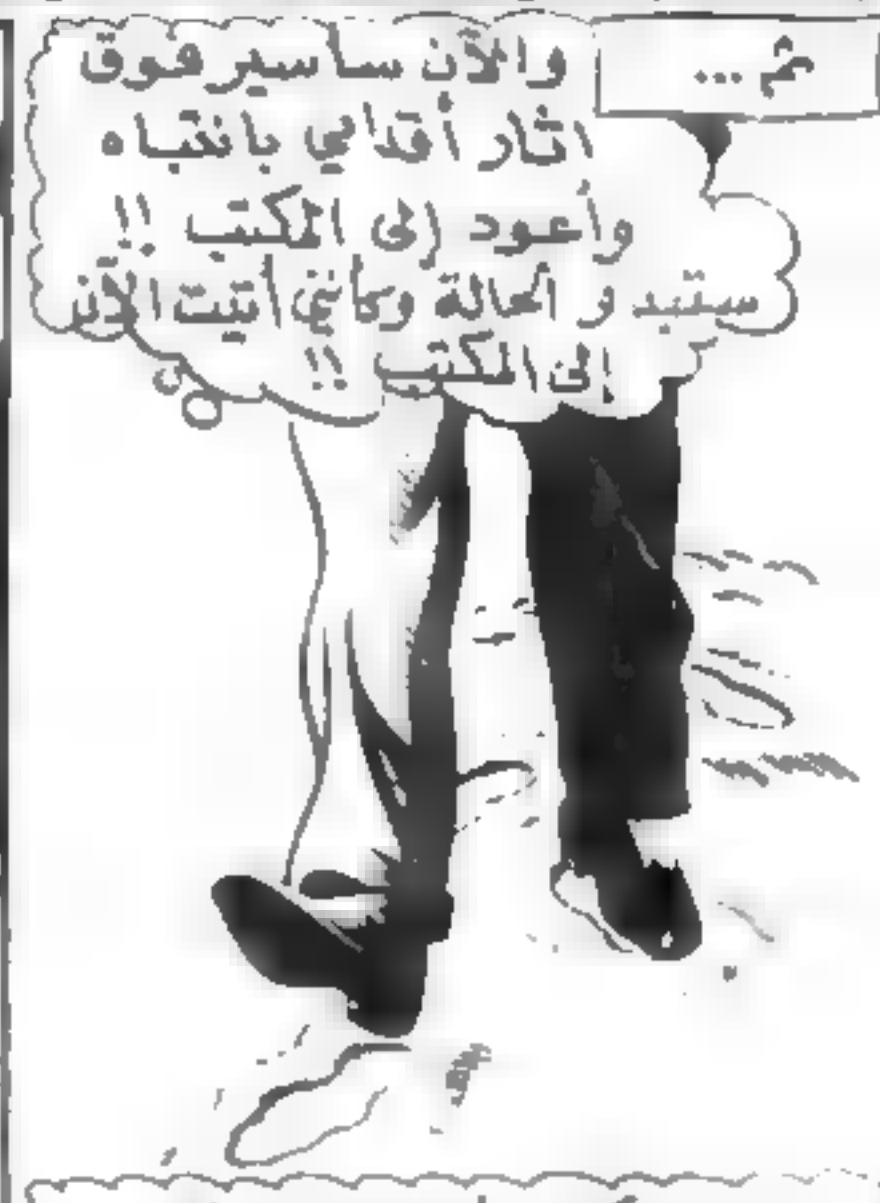 ثم ...
والآن سأسير فوق
اثار أقدامي بانتباه
وأعود إلى المكتب !!
ستبدو الحالة وكأنني أتيت الآن
إلى المكتب !!